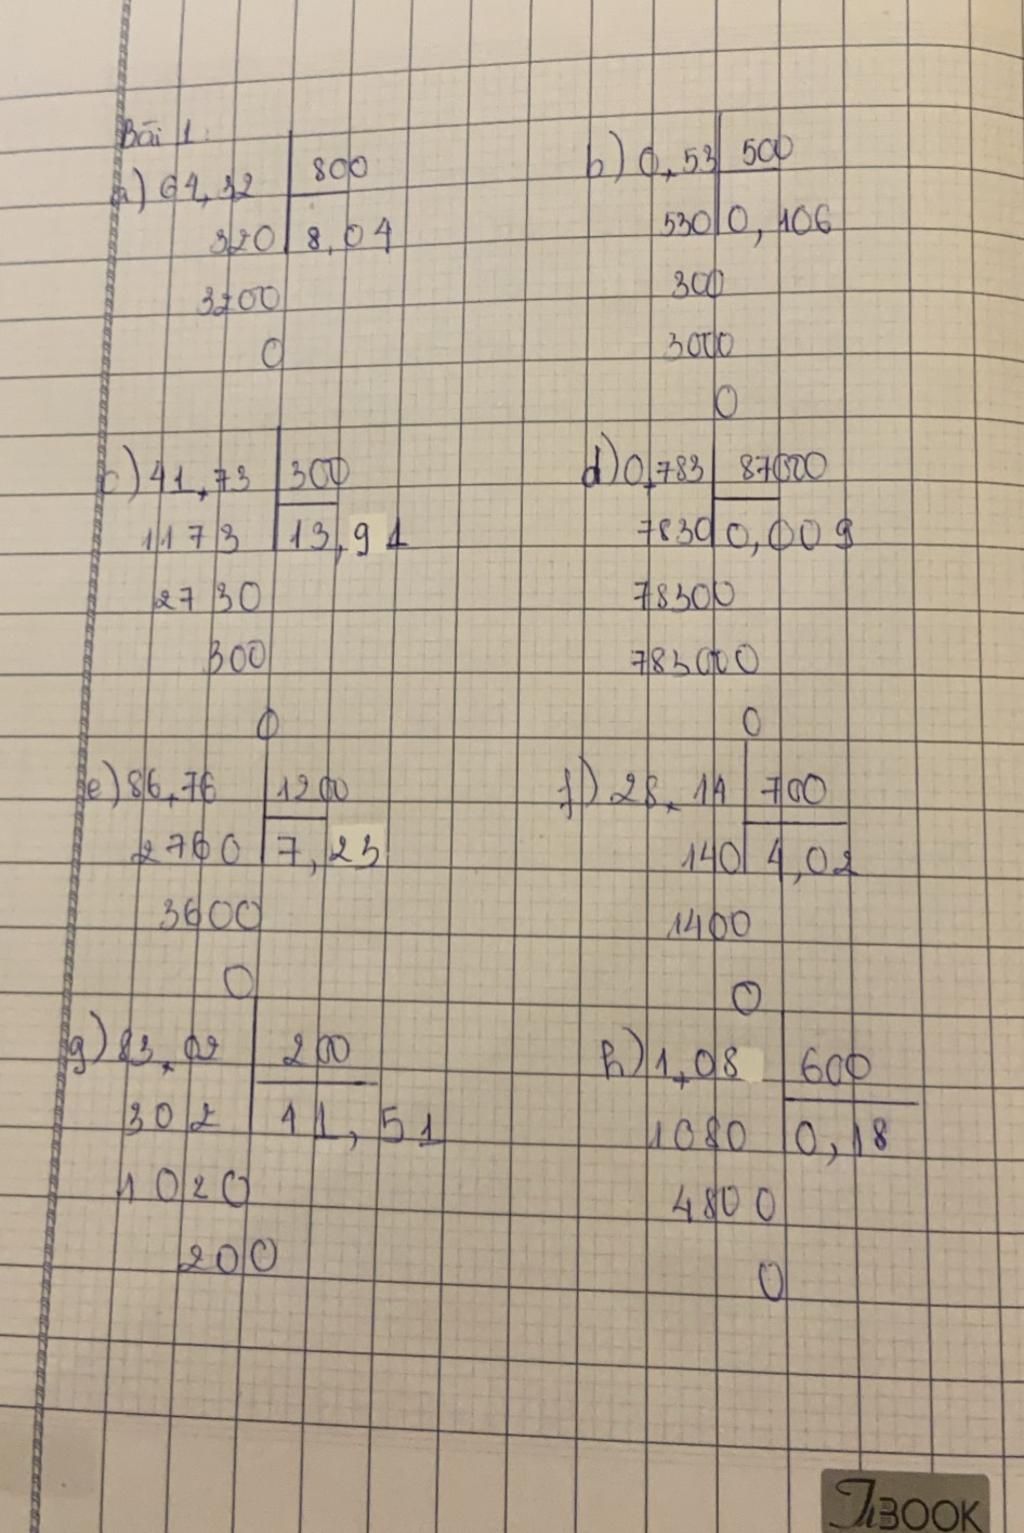 Bài 1:
a) 64,32 800
320 8,04
3200
0
b) 0,53 500
530 0,106
300
3000
0
c) 41,73 300
1173 13,91
2730
300
0
d) 0,783 87000
7830 0,009
78300
783000
0
e) 86,76 1200
2760 7,23
3600
0
f) 28,14 700
140 4,02
1400
0
g) 83,02 200
302 41,51
1020
200
h) 1,08 600
1080 0,18
4800
0
TBOOK